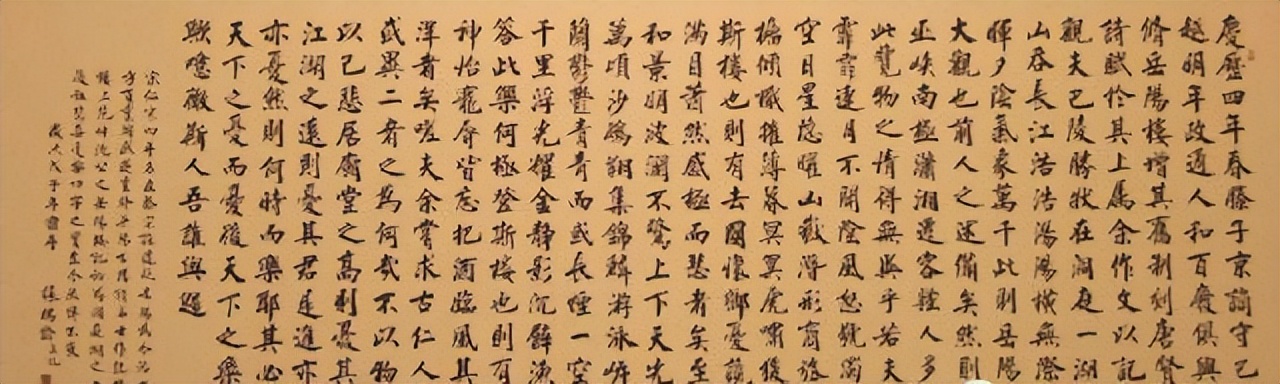 慶歷四年春滕子京謫守巴
越明年政通人和百廢俱興
脩岳陽樓增其舊制刻唐賢
詩賦於其上屬余作文以記
觀夫巴陵勝狀在洞庭一湖
山吞長江浩浩湯湯橫無際
暉夕陰氣象萬千此則岳陽
大觀也前人之述備矣然則
巫峽南極瀟湘遷客騷人多
此覽物之情得無異乎若夫
霏霏連月不開陰風怒號濁
空日星隱曜山嶽潛形商旅
檣傾檝摧薄暮冥冥虎嘯猿
斯樓也則有去國懷鄉憂讒
滿目蕭然感極而悲者矣至
和景明波瀾不驚上下天光
萬頃沙鷗翔集錦鱗游泳岸
蘭鬱鬱青青而或長煙一空
千里浮光耀金静影沉璧漁
答此樂何極登斯樓也則有
神怡寵辱皆忘把酒臨風其
洋者矣嗟夫余嘗求古仁人
或異二者之為何哉不以物
以己悲居廟堂之高則憂其
江湖之遠則憂其君是進亦
亦憂然則何時而樂耶其必
天下之憂而憂後天下之樂
歟噫微斯人吾誰與歸
歲次戊子年